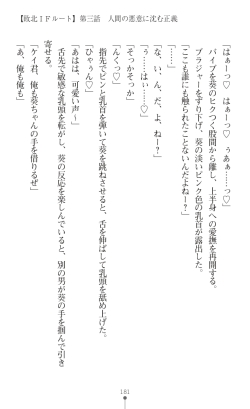 【敗北IFルート】第三話　人間の悪意に沈む正義
「はぁーっ♡　はぁーっ♡　ぅあぁ……っ♡」
バイブを葵のヒクつく股間から離し、上半身への愛撫を再開する。
ブラジャーをずり下げ、葵の淡いピンク色の乳首が露出した。
「ここも誰にも触られたことないんだよねー？」
「……っ」
「な、い、ん、だ、よ、ねー？」
「ぅ……はい……っ♡」
「そっかそっか」
「んくっ♡」
指先でピンと乳首を弾いて葵を跳ねさせると、舌を伸ばして乳頭を舐め上げた。
「ひゃぅん♡」
「あはは、可愛い声〜」
舌先で敏感な乳頭を転がし、葵の反応を楽しんでいると、別の男が葵の手を掴んで引き
寄せる。
「ケイ君、俺も葵ちゃんの手を借りるぜ」
「あ、俺も俺も」
181